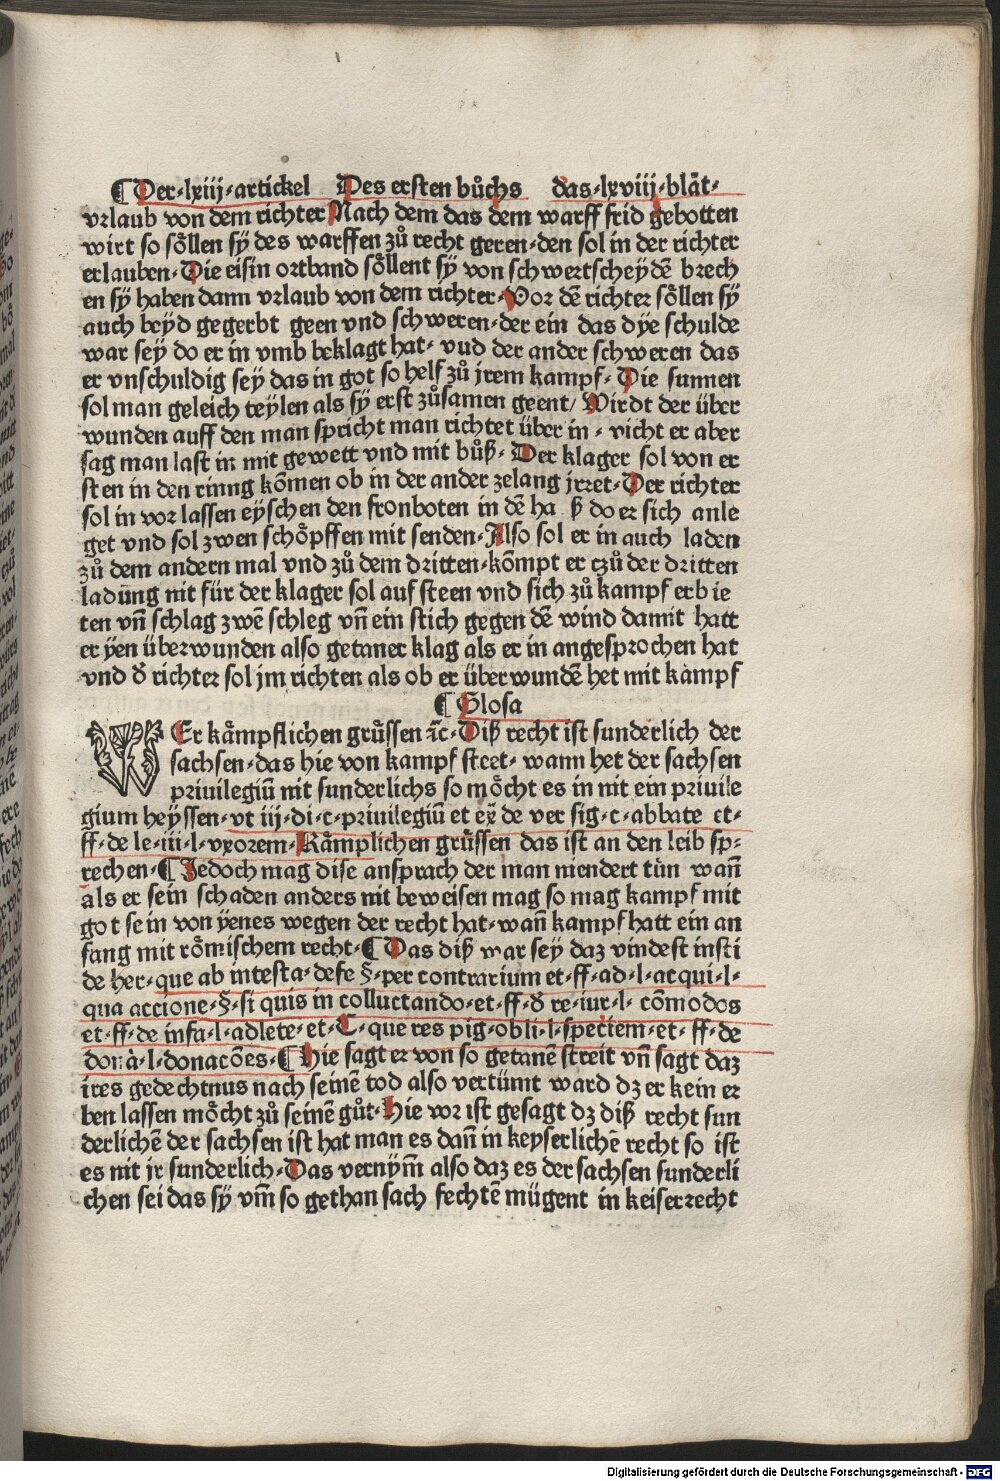 ¶ Der·lxiij·artickel Des ersten bůchs das·lxviij·blāt·
vrlaub von dem richter Nach dem das dem warff frid gebotten
wirt so söllen sy̆ des warffen zů recht geren·den sol in der richter
erlauben·Die eisin ortband söllent sy̆ von schwertscheydē brech
en sy̆ haben dann vrlaub von dem richter·Vor dē richter söllen sy̆
auch bey̆d gegerbt geen vnd schweren·der ein das dy̆e schulde
war sey do er in vmb beklagt hat· vud der ander schweren das
er vnschuldig sey̆ das in got so helf zů jrem kampf· Die sunnen
sol man geleich tey̆len als sy̆ erst zůsamen geent/ Wirdt der über
wunden auff den man spricht man richtet über in · vicht er aber
sag man last in mit gewett vnd mit bůß· Der klager sol von er
sten in den rinng kōmen ob in der ander zelang jrret·Der richter
sol in vor lassen ey̆schen den fronboten in dē ha ß do er sich anle
get vnd sol zwen schöpffen mit senden·Also sol er in auch laden
zů dem andern mal vnd zů dem dritten·kōmpt er czů der dritten
ladung nit für der klager sol auf steen vnd sich zů kampf erbie
ten vn̄ schlag zwē schleg vn̄ ein stich gegen dē wind damit hatt
er y̆en überwunden also getaner klag als er in angesprochen hat
vnd ð richter sol jm richten als ob er überwundē het mit kampf
¶ Glosa
WEr kåmpflichen grüssen ꝛc̄·Diß recht ist sunderlich der
sachsen·das hie von kampf steet· wann het der sachsen
priuilegiū nit sunderlichs so möcht es in nit ein priuile
gium heyssen·vt iij·di·c·priuilegiū et ex̄ de ver sig·c·abbate et·
ff·de le·iii·l·vxorem·Kåmplichen grüssen das ist an den leib sp·
rechen·¶ Jedoch mag dise ansprach der man niendert tůn wan̄
als er sein schaden anders nit beweisen mag so mag kampf mit
got sein von y̆enes wegen der recht hat·wan̄ kampf hatt ein an
fang mit römischem recht·¶ Das diß war sey daz vindest insti
de her·que ab intesta·defe §·per contrarium et·ff·ad·l·acqui·l·
qua accione·§·si quis in colluctando·et·ff·ð re·iur·l·cōmodos
et·ff·de infa·l·adlete·et·C·que res pig·obli·l·speciem·et·ff·de
dona·l·donacōes·¶ Hie sagt er von so getanē streit vn̄ sagt daz
ires gedechtnus nach seinē tod also vertümt ward dz er kein er
ben lassen möcht zů seinē gůt·Hie vor ist gesagt dz diß recht sun
derlichē der sachsen ist hat man es dan̄ in keyserlichē recht so ist
es nit jr sunderlich·Das verny̆m̄ also daz es der sachsen sunderli
chen sei das sy̆ vm̄ so gethan sach fechtē mügent in keiserrecht
Digitalisierung gefördert durch die Deutsche Forschungsgemeinschaft - DFG